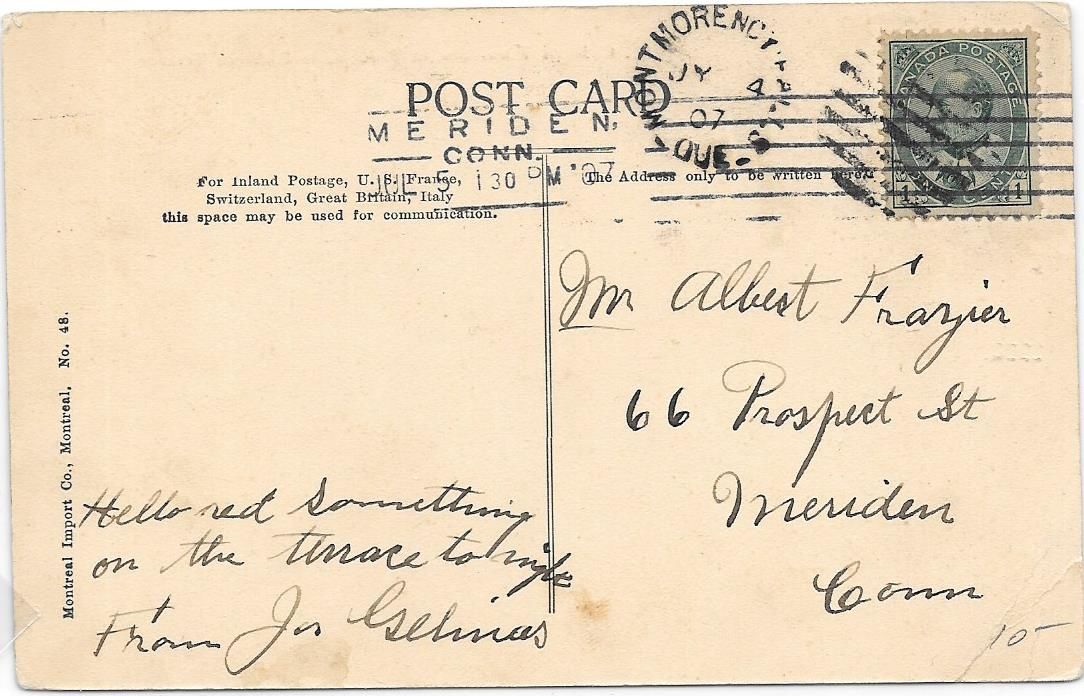 POST CARD
MERIDEN,
CONN.
JUL 5 130 PM '07
MONTMORENCY FALLS
JY 4
07
QUE
CANADA POSTAGE
1 CENT 1
For Inland Postage, U. S. France,
Switzerland, Great Britain, Italy
this space may be used for communication.
The Address only to be written here.
Mr Albert Frazier
66 Prospect St
Meriden
Conn
10
Hello red something
on the terrace to night
From Jos Gelinas
Montreal Import Co., Montreal. No. 48.